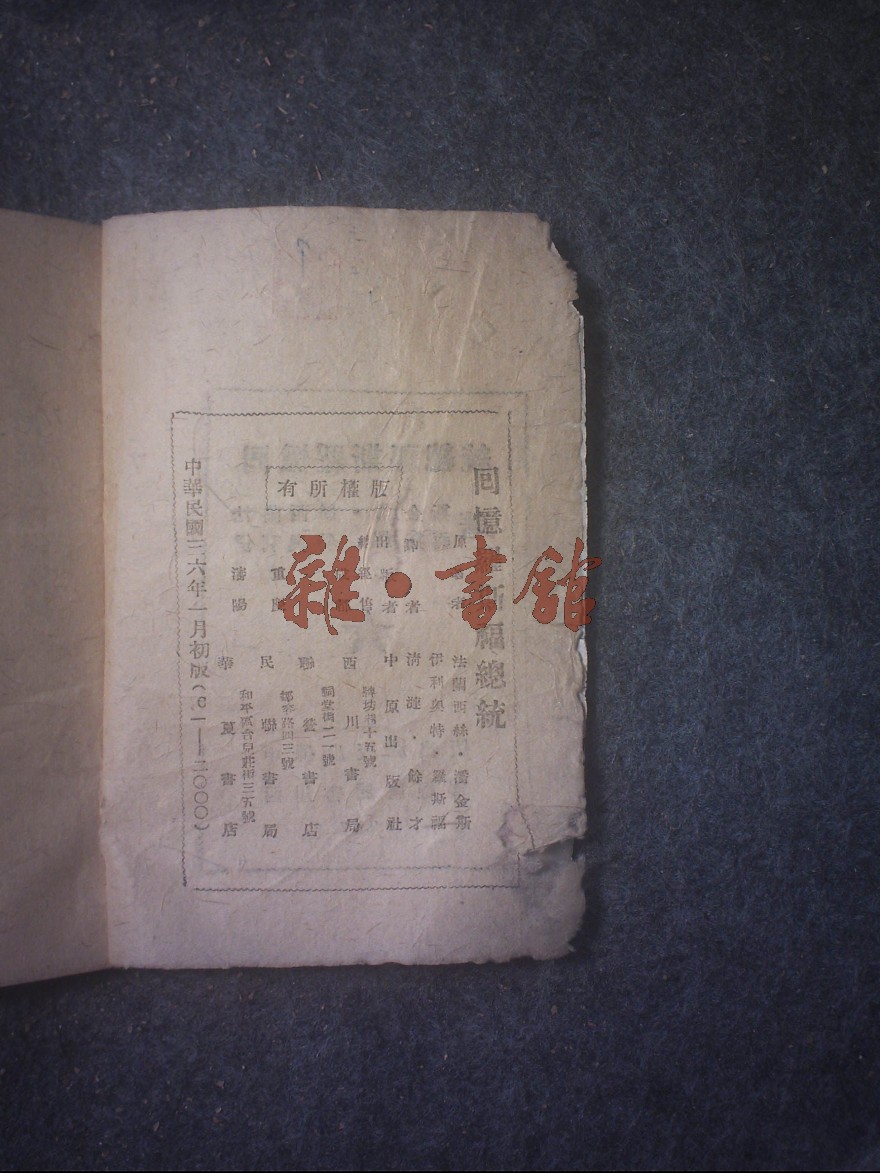 回憶羅斯福總統
原著者
法蘭西絲·潘金斯
伊利奧特·羅斯福
譯者
清漣·餘才
出版者
中原出版社
版權所有
西川書局
牌坊巷十五號
聯營書店
祠堂街二一號
重慶
民聯書局
鄒容路四三號
瀋陽
華夏書店
和平區台兒莊街三五號
中華民國三六年一月初版(01——2000)
雜·書館